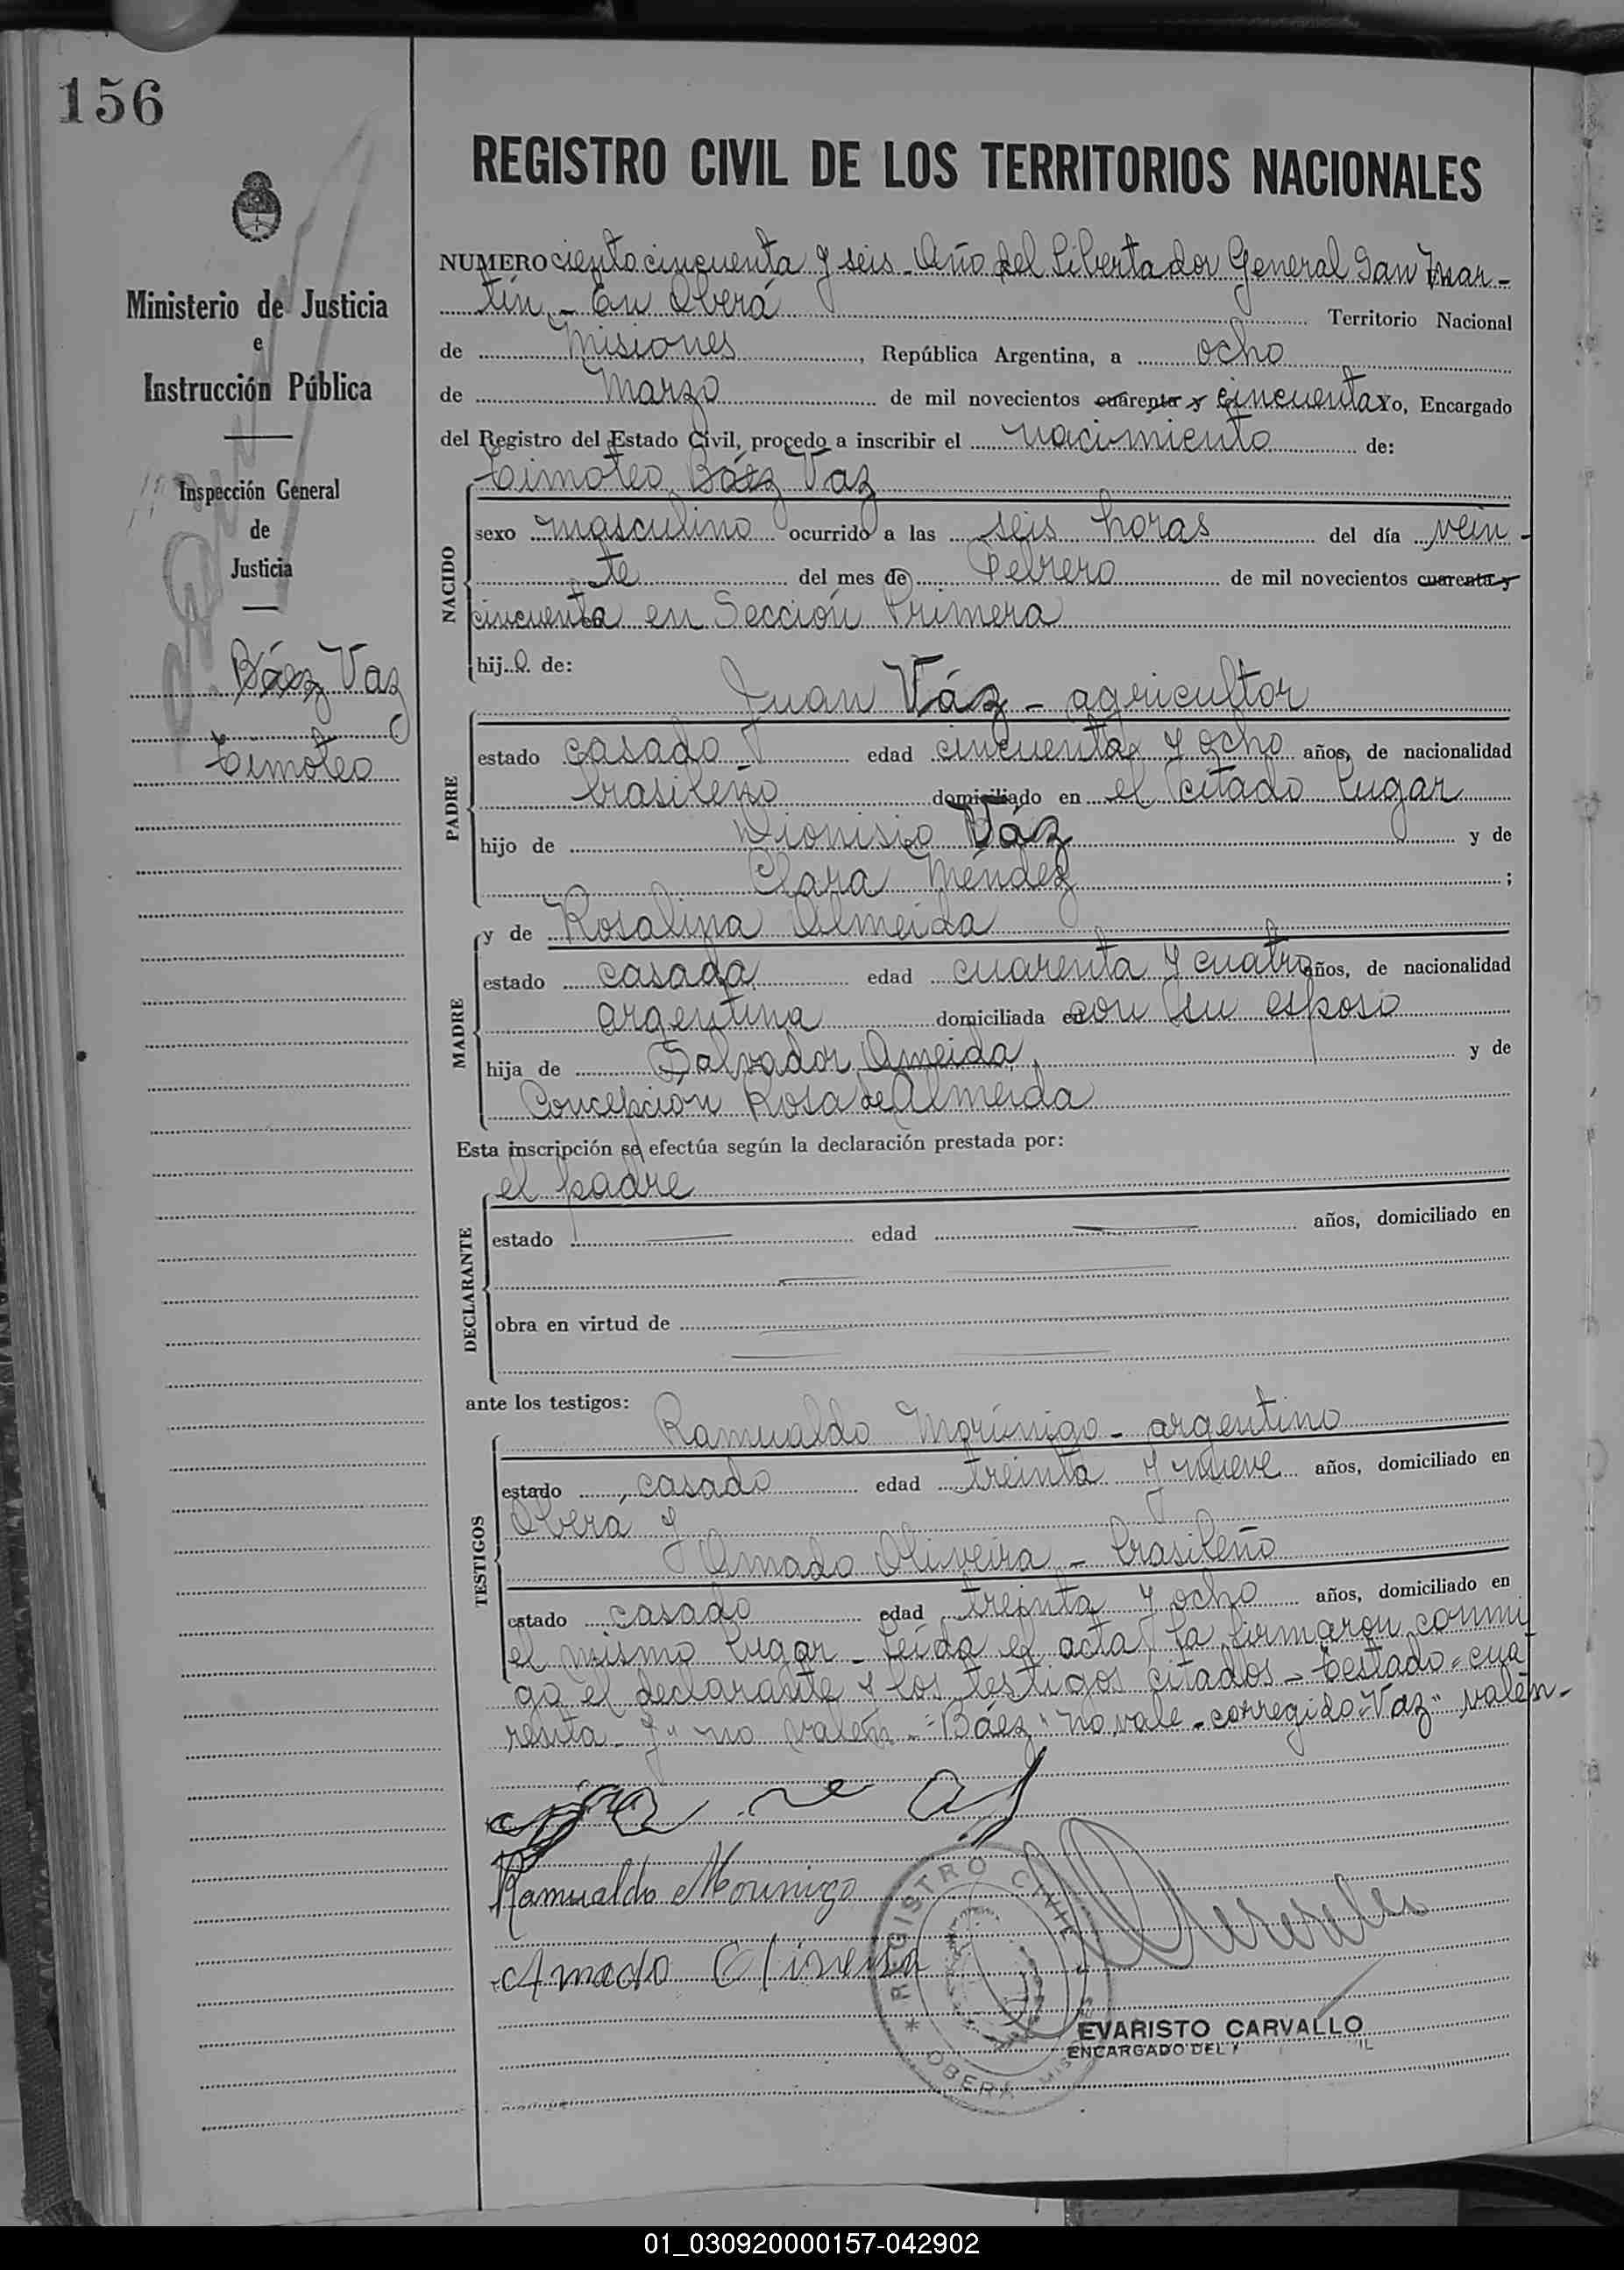 156
REGISTRO CIVIL DE LOS TERRITORIOS NACIONALES
Ministerio de Justicia
e
Instrucción Pública
Inspección General
de
Justicia
Báez Vaz
Timoteo
NUMERO ciento cincuenta y seis - Año del Libertador General San Mar-
tín - En Oberá Territorio Nacional
de Misiones, República Argentina, a ocho
de Marzo de mil novecientos cuarenta y cincuenta Yo, Encargado
del Registro del Estado Civil, procedo a inscribir el nacimiento de:
Timoteo Báez Vaz
NACIDO
sexo masculino ocurrido a las seis horas del día vein-
te del mes de Febrero de mil novecientos cuarenta y
cincuenta en Sección Primera
hijo de:
PADRE
Juan Váz - agricultor
estado casado edad cincuenta y ocho años, de nacionalidad
brasileño domiciliado en el citado lugar
hijo de Dionisio Váz y de
Clara Méndez;
MADRE
y de Rosalina Almeida
estado casada edad cuarenta y cuatro años, de nacionalidad
argentina domiciliada en con su esposo
hija de Salvador Ameida y de
Concepción Rosa de Almeida
Esta inscripción se efectúa según la declaración prestada por:
DECLARANTE
el padre
estado edad años, domiciliado en
obra en virtud de
ante los testigos:
TESTIGOS
Ramualdo Morínigo - argentino
estado casado edad treinta y nueve años, domiciliado en
Oberá y
Amado Oliveira - brasileño
estado casado edad treinta y ocho años, domiciliado en
el mismo lugar - Leída el acta, la firmaron conmi
go el declarante y los testigos citados - Testado = cua
renta y" no valen - "Báez" no vale - corregido "Vaz" valen -
Ramualdo Morinigo
Amado Oliveira
REGISTRO CIVIL
OBERÁ MISIONES
EVARISTO CARVALLO
ENCARGADO DEL
01_030920000157-042902